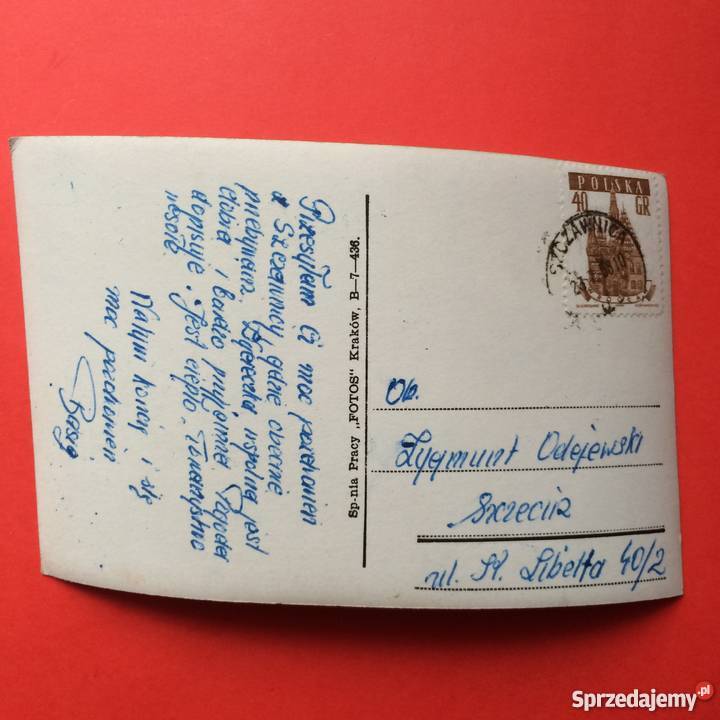 Przesyłam Ci moc pozdrowień
z Szczawnicy gdzie obecnie
przebywam. Wycieczka wspólna jest
długa i bardzo przyjemna. Pogoda
dopisuje. Jest ciepło. Towarzystwo
wesołe
Kończę i
moc pozdrowień
Basia
Sp-nia Pracy „FOTOS” Kraków, B—7—436.
POLSKA
40 GR
SZCZAWNICA
Ob.
Zygmunt Odejewski
Szczecin
ul. K. Libelta 40/2
Sprzedajemy.pl